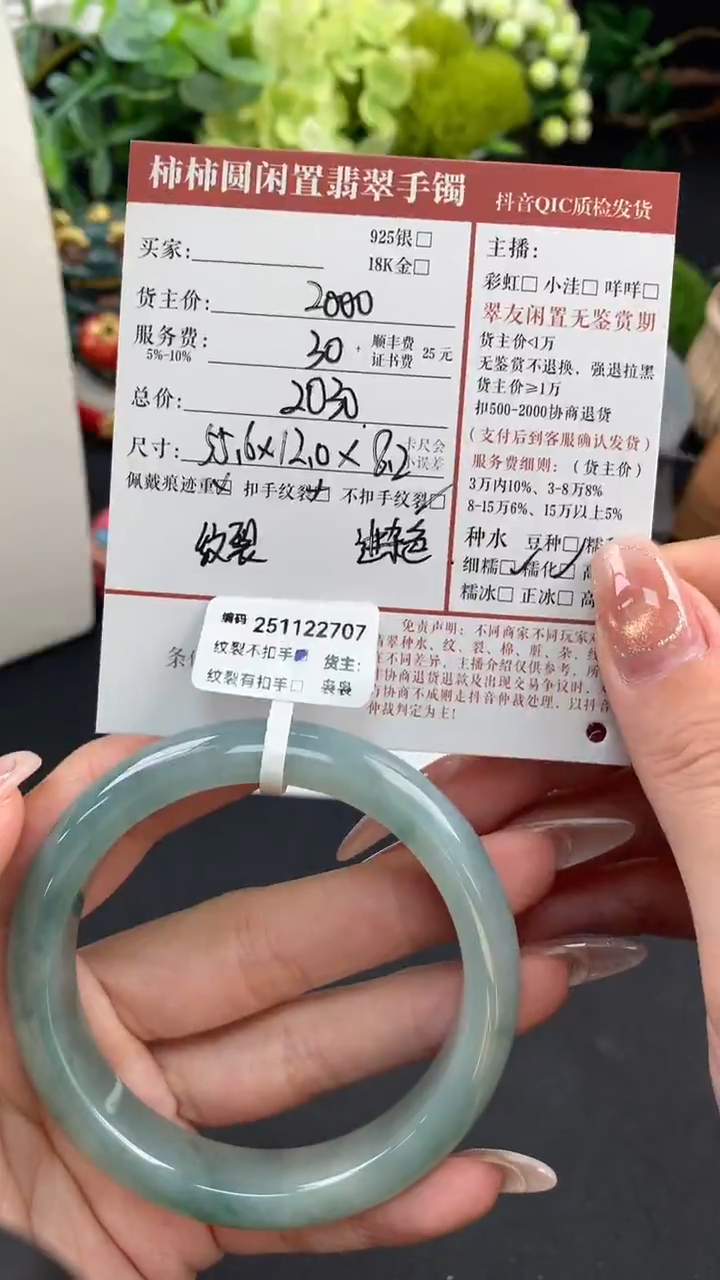 柿柿圆闲置翡翠手镯
抖音QIC质检发货
买家:
925银□
18K金□
货主价: 2000
服务费: 30 + 顺丰费 证书费 25元
5%-10%
总价: 2030
尺寸: 55.6×12.0×8.2 卡尺会
小误差
佩戴痕迹重□ 扣手纹裂□ 不扣手纹裂□
纹裂
主播:
彩虹□ 小洼□ 咩咩□
翠友闲置无鉴赏期
货主价<1万
无鉴赏不退换，强退拉黑
货主价≥1万
扣500-2000协商退货
(支付后到客服确认发货)
服务费细则:（货主价）
3万内10%、3-8万8%
8-15万6%、15万以上5%
种水 豆种□
细糯□ 糯化□ 高
糯冰□ 正冰□ 高
编码 251122707
纹裂不扣手 货主:
纹裂有扣手□ 袅袅
免责声明: 不同商家不同玩家
翠种水、纹、裂、棉、脏、杂、
不同差异，主播介绍仅供参考，所
协商退货退款及出现交易争议时，
协商不成则走抖音仲裁处理，以抖音
仲裁判定为主!